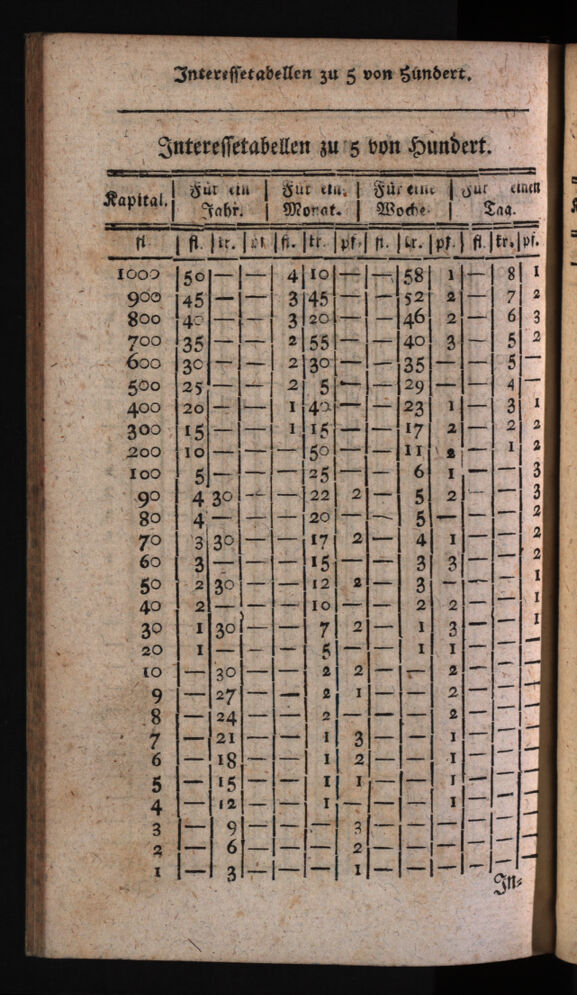 Interessetabellen zu 5 von Hundert.
Interessetabellen zu 5 von Hundert.
Kapital. | Für ein Jahr. | Für ein. Monat. | Für eine Woche. | Für einen Tag.
fl | fl. | kr. | pf. | fl. | kr. | pf. | fl. | kr. | pf. | fl. | kr. | pf.
1000 | 50 | — | — | 4 | 10 | — | — | 58 | 1 | — | 8 | 1
900 | 45 | — | — | 3 | 45 | — | — | 52 | 2 | — | 7 | 2
800 | 40 | — | — | 3 | 20 | — | — | 46 | 2 | — | 6 | 3
700 | 35 | — | — | 2 | 55 | — | — | 40 | 3 | — | 5 | 2
600 | 30 | — | — | 2 | 30 | — | — | 35 | — | — | 5 | —
500 | 25 | — | — | 2 | 5 | — | — | 29 | — | — | 4 | —
400 | 20 | — | — | 1 | 40 | — | — | 23 | 1 | — | 3 | 1
300 | 15 | — | — | 1 | 15 | — | — | 17 | 2 | — | 2 | 2
200 | 10 | — | — | — | 50 | — | — | 11 | 2 | — | 1 | 2
100 | 5 | — | — | — | 25 | — | — | 6 | 1 | — | — | 3
90 | 4 | 30 | — | — | 22 | 2 | — | 5 | 2 | — | — | 3
80 | 4 | — | — | — | 20 | — | — | 5 | — | — | — | 2
70 | 3 | 30 | — | — | 17 | 2 | — | 4 | 1 | — | — | 2
60 | 3 | — | — | — | 15 | — | — | 3 | 3 | — | — | 2
50 | 2 | 30 | — | — | 12 | 2 | — | 3 | — | — | — | 1
40 | 2 | — | — | — | 10 | — | — | 2 | 2 | — | — | 1
30 | 1 | 30 | — | — | 7 | 2 | — | 1 | 3 | — | — | 1
20 | 1 | — | — | — | 5 | — | — | 1 | 1 | — | — | —
10 | — | 30 | — | — | 2 | 2 | — | — | 2 | — | — | —
9 | — | 27 | — | — | 2 | 1 | — | — | 2 | — | — | —
8 | — | 24 | — | — | 2 | — | — | — | 2 | — | — | —
7 | — | 21 | — | — | 1 | 3 | — | — | 1 | — | — | —
6 | — | 18 | — | — | 1 | 2 | — | — | 1 | — | — | —
5 | — | 15 | — | — | 1 | 1 | — | — | 1 | — | — | —
4 | — | 12 | — | — | 1 | — | — | — | 1 | — | — | —
3 | — | 9 | — | — | — | 3 | — | — | — | — | — | —
2 | — | 6 | — | — | — | 2 | — | — | — | — | — | —
1 | — | 3 | — | — | — | 1 | — | — | — | — | — | —
In=